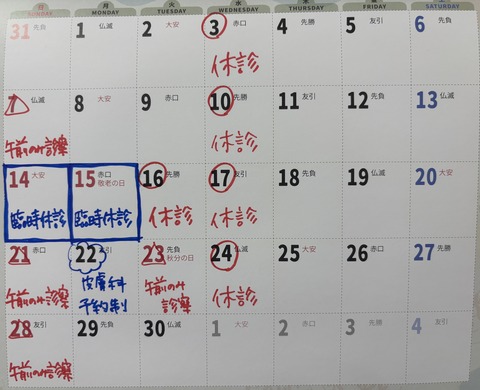 日 月 火 水 木 金 土
SUNDAY MONDAY TUESDAY WEDNESDAY THURSDAY FRIDAY SATURDAY
31 先負 1 仏滅 2 大安 3 赤口 4 先勝 5 友引 6 先負
休診
7 仏滅 8 大安 9 赤口 10 先勝 11 友引 12 先負 13 仏滅
午前のみ診察 休診
14 大安 15 赤口 敬老の日 16 先勝 17 友引 18 先負 19 仏滅 20 大安
臨時休診 臨時休診 休診 休診
21 赤口 22 友引 23 先負 秋分の日 24 仏滅 25 大安 26 赤口 27 先勝
午前のみ診察 皮膚科 午前のみ 休診
予約制 診察
28 友引 29 先負 30 仏滅 1 大安 2 赤口 3 先勝 4 友引
午前のみ診察